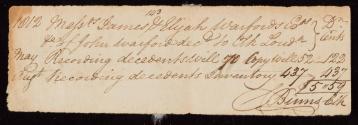 1812 Mess.rs James & Elijah Warfords Ex.rs Dr
of John Warford dec.d to Clk Loud.n Cents
May Recording decedents will 70 Copy Will 52 - 122
Recording decedents Inventory 437 - 437
$5.59
Binns Clk